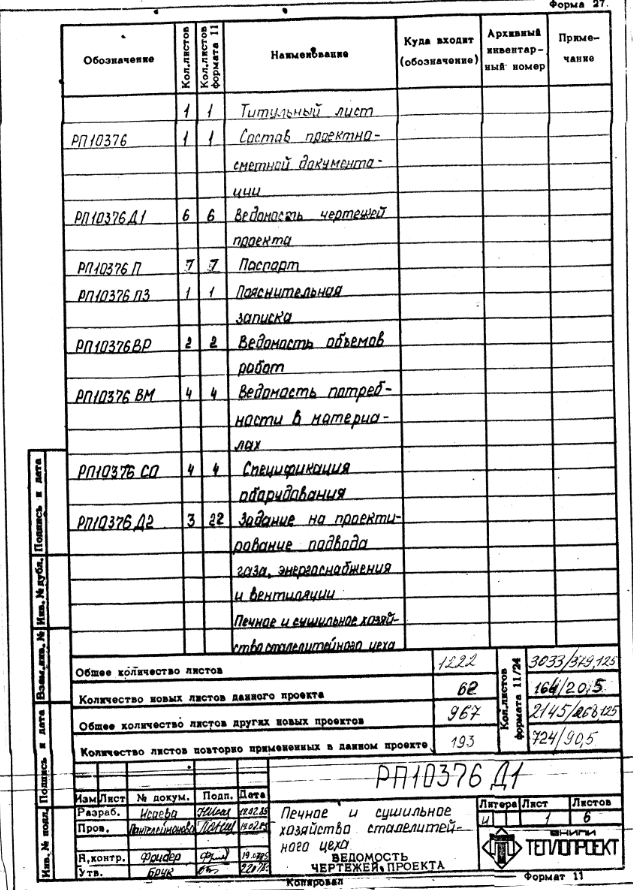 Форма 27.
Обозначение Кол.листов Кол.листов формата 11 Наименование Куда входит (обозначение) Архивный инвентарный номер Примечание
1 1 Титульный лист
РП10376 1 1 Состав проектно-
сметной документа-
ции
РП10376 Д1 6 6 Ведомость чертежей
проекта
РП10376 П 7 7 Паспорт
РП10376 ПЗ 1 1 Пояснительная
записка
РП10376 ВР 2 2 Ведомость объемов
работ
РП10376 ВМ 4 4 Ведомость потреб-
ности в материа-
лах
РП10376 СО 4 4 Спецификация
оборудования
РП10376 Д2 3 22 Задание на проекти-
рование подвода
газа, энергоснабжения
и вентиляции
Печное и сушильное хозяй-
ство сталелитейного цеха
Общее количество листов 1222 Кол.листов формата 11/24 3033/379,125
Количество новых листов данного проекта 62 164/20,5
Общее количество листов других новых проектов 967 2145/268,125
Количество листов повторно примененных в данном проекте 193 724/90,5
РП10376 Д1
Изм Лист № докум. Подп. Дата
Разраб. Исаева
Пров. Пантелеймонова
Н.контр. Фридер
Утв. Брук
Печное и сушильное
хозяйство сталелитей-
ного цеха
ВЕДОМОСТЬ
ЧЕРТЕЖЕЙ ПРОЕКТА
Литера Лист Листов
и 1 6
ВНИПИ
ТЕПЛОПРОЕКТ
Копировал Формат 11
Инв. № подл. Подпись и дата Взам.инв. № Инв. № дубл. Подпись и дата